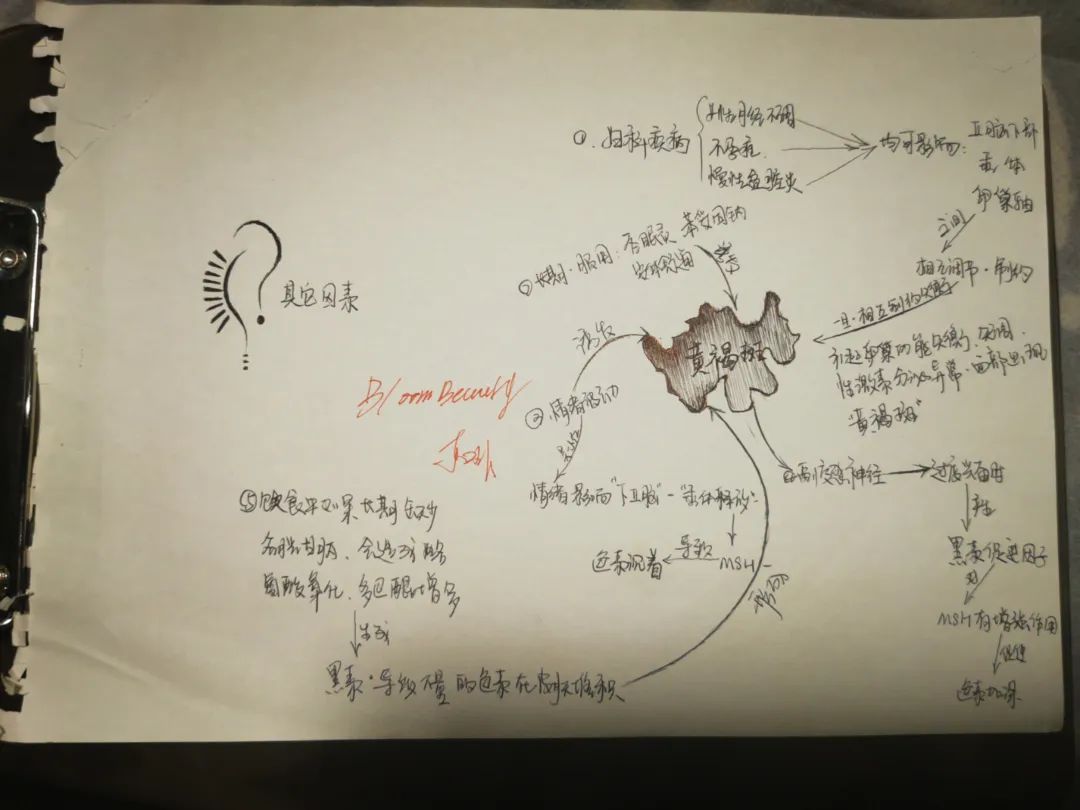 ①. 妇科疾病
月经不调
不孕症.
慢性盆腔炎
均可影响:
丘脑下部
垂体
卵巢轴
之间
相互调节·制约
一旦·相互制约
引起卵巢功能
性激素分泌异常·面部出现
"黄褐斑"
长期·服用: 苯妥因钠
黄褐斑
诱发
情绪波动
情绪影响"下丘脑"-"垂体释放"-
MSH-
导致
色素沉着
副交感神经
过度兴奋时
产生
黑素促进因子
对
MSH有增强作用
促进
色素加深
其它因素
⑤饮食中如果长期缺少
谷胱甘肽、会造成酪
氨酸氧化、多巴醌增多
生成
黑素·导致大量的色素在皮肤堆积
形成